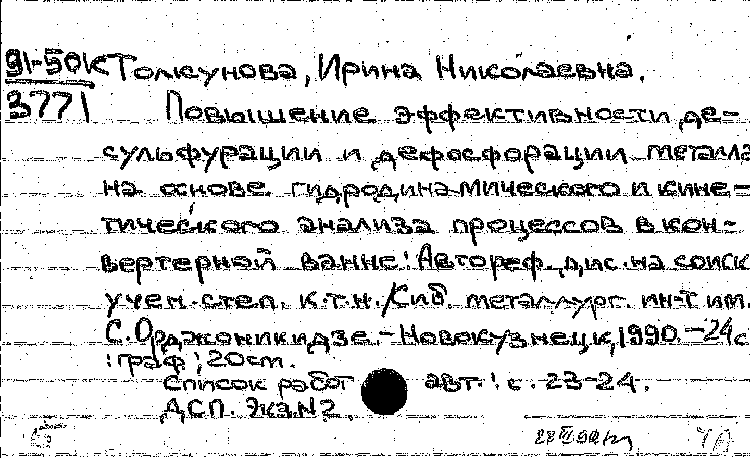 91-50К Толкунова, Ирина Николаевна.
3771 Повышение эффективности де-
сульфурации и дефосфорации металла
на основе гидродинамического и кине-
тического анализа процессов в кон-
вертерной ванне: Автореф. дис. на соиск.
учен. степ. к.т.н./Сиб. металлург. ин-т им.
С. Орджоникидзе. - Новокузнецк, 1990. - 24с
: граф; 20 cm.
Список работ авт.: с. 23-24.
ДСП. Экз. N2